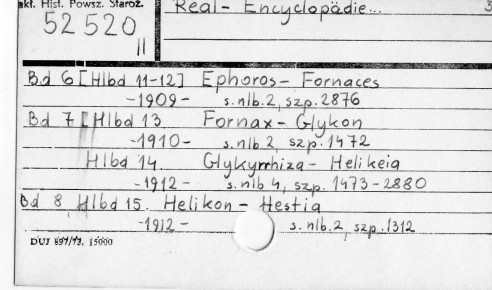 akł. Hist. Powsz. Staroż.
Real-Encyclopädie...
3
52 520
II
Bd 6 [Hlbd 11-12] Ephoros - Fornaces
-1909- s.nlb.2, szp. 2876
Bd 7 [Hlbd 13 Fornax - Glykon
-1910- s.nlb 2, szp. 1472
Hlbd 14. Glykyrrhiza - Helikeia
-1912- s.nlb 4, szp. 1473-2880
Bd 8 Hlbd 15. Helikon - Hestia
-1912- s.nlb.2, szp. 1312
DUJ 897/73. 15000